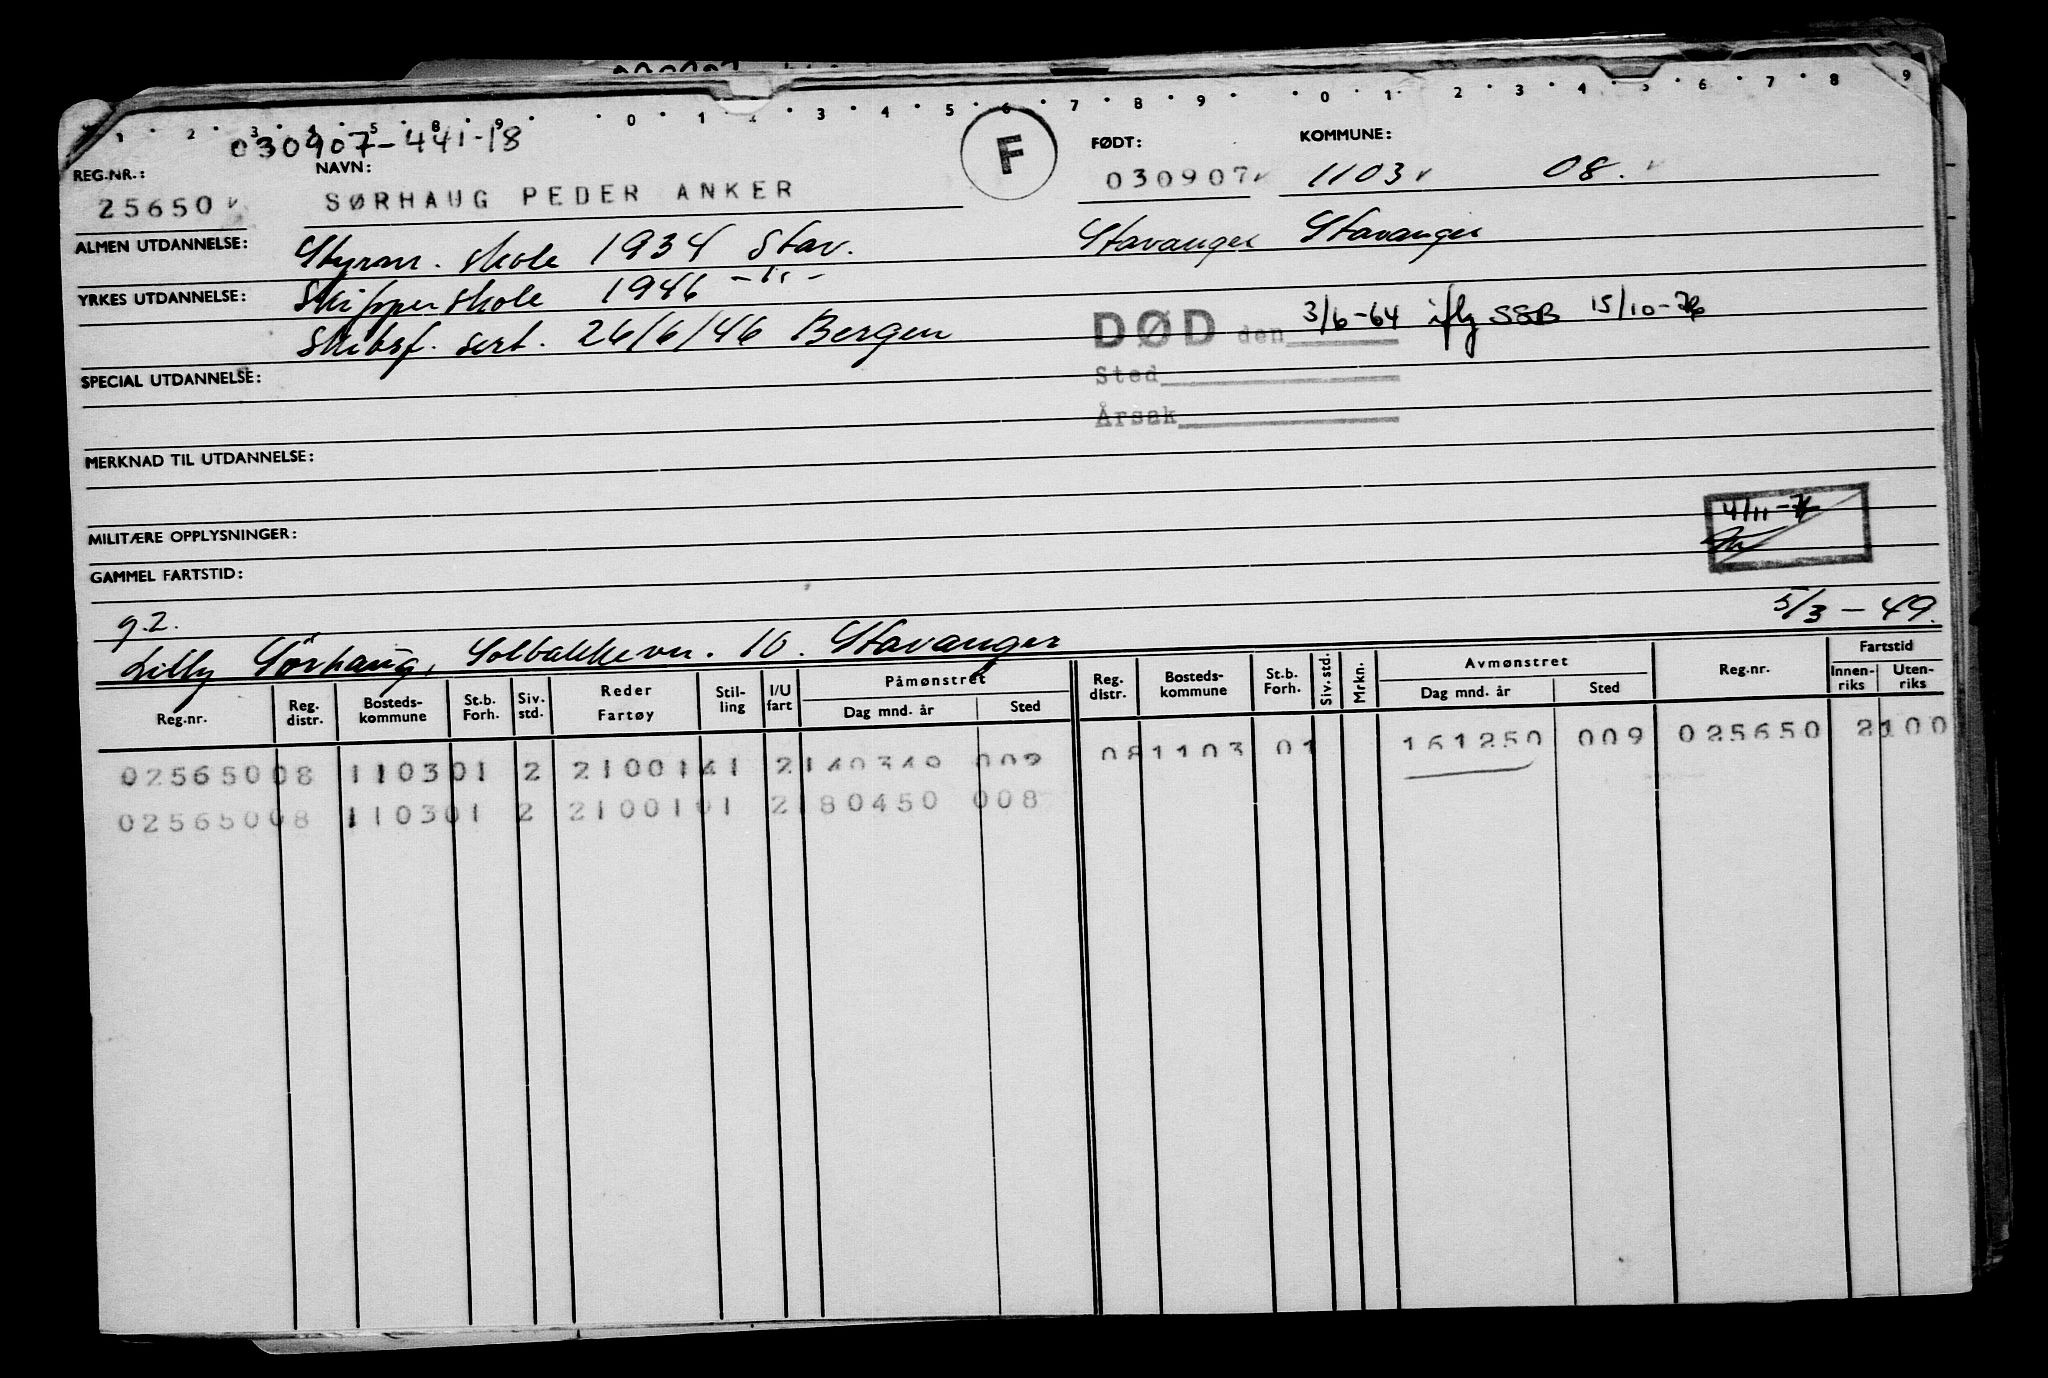 1 2 3 4 5 8 9 0 1 2 3 4 5 6 7 8 9 0 1 2 3 4 5 6 7 8 9
030907-441-18
REG.NR.: NAVN: F FØDT: KOMMUNE:
25650 SØRHAUG PEDER ANKER 030907 1103 08.
ALMEN UTDANNELSE: Styrm. skole 1934 Stav. Stavanger Stavanger
YRKES UTDANNELSE: Skipperskole 1946 -"-
Skibsf. sert. 26/6/46 Bergen DØD den 3/6-64 iflg SSB 15/10-76
SPECIAL UTDANNELSE: Sted
Årsak
MERKNAD TIL UTDANNELSE:
4/11-
MILITÆRE OPPLYSNINGER:
GAMMEL FARTSTID:
g.2. 5/3-49.
Lilly Sørhaug, Solbakkevn. 10. Stavanger
Reg.nr. Reg. distr. Bosteds-kommune St.b. Forh. Siv. std. Reder Fartøy Stil-ling I/U fart Påmønstret Dag mnd. år Sted Reg. distr. Bosteds-kommune St.b. Forh. Siv. std. Mrkn. Avmønstret Dag mnd. år Sted Reg.nr. Fartstid Innen-riks Uten-riks
025650 08 1103 01 2 21001 41 2 140349 009 08 1103 01 161250 009 025650 2100
025650 08 1103 01 2 21001 01 2 180450 008